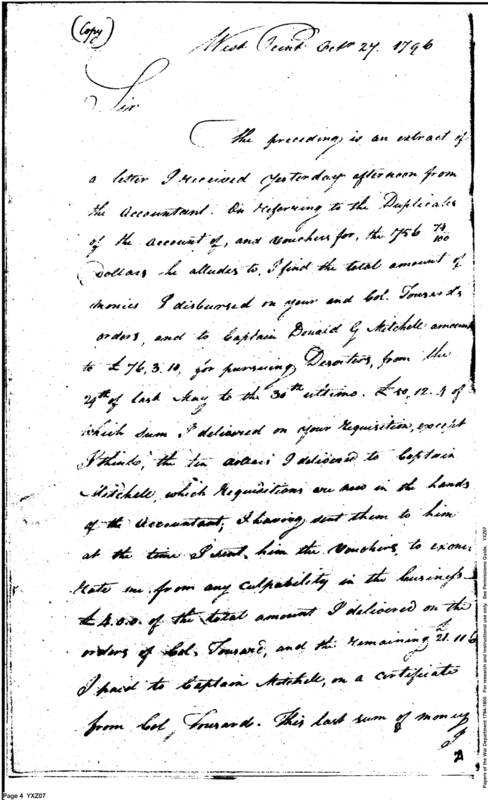 (Copy)
West Point Octr 27. 1796
Sir
the preceding is an extract of
a letter I received yesterday afternoon from
the Accountant. On referring to the Duplicates
of the account of, and vouchers for, the 756 73/100
Dollars he alludes to, I find the total amount of
monies I disbursed on your and Col. Tousards
orders, and to Captain Donald G Mitchell amount
to £ 76.3.10, for pursuing Deserters, from the
29th of last May to the 30th ultimo. £ 50.12.4 of
which sum I delivered on your requisition, except
I think, the ten dollars I delivered to Captain
Mitchell, which requisitions are now in the hands
of the Accountant, I having sent them to him
at the time I sent him the vouchers, to exone
rate me from any culpability in the business
£ 4.0.0. of the total amount I delivered on the
orders of Col. Tousard, and the remaining £ 21.11.6
I paid to Captain Mitchell, on a certificate
from Col, Tousard. This last sum of money
I
Page 4 YXZ07
Papers of the War Department 1784-1800. For research and instructional use only. See Permissions Guide. YXZ07